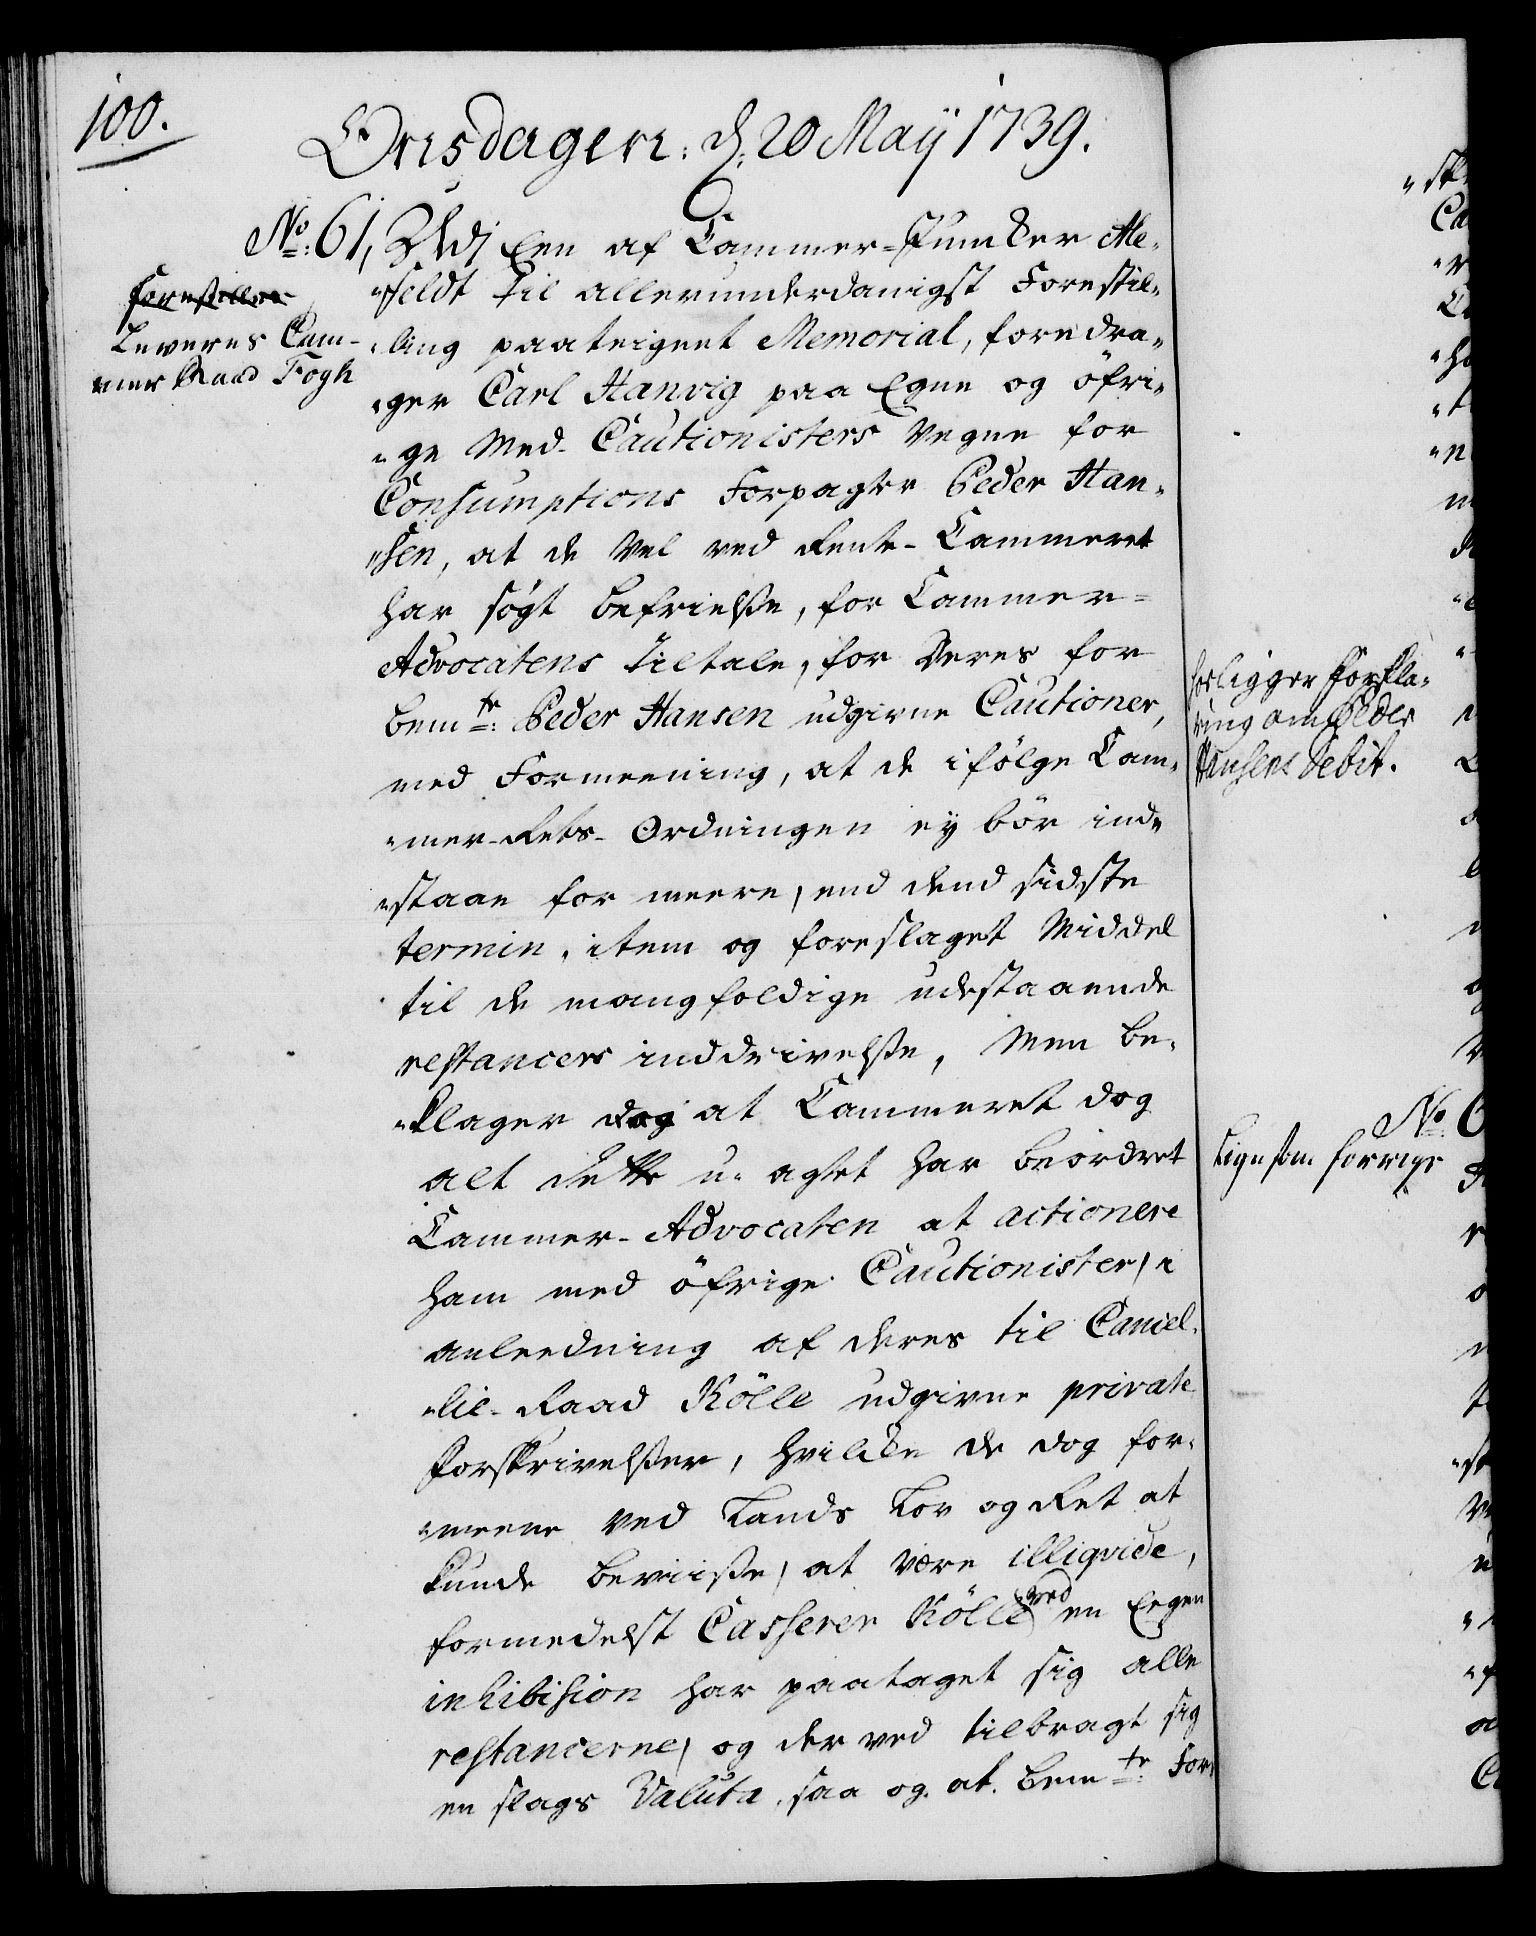 100.
Onsdagen: d: 20 Maÿ 1739.
No: 61,
Udj Een af Cammer-Juncker Ale-
forestilles
"feldt til allerunderdanigst Forestil-
Leveres Cam-
"ling paateignet Memorial, foredra-
mer Raad Fogh
"ger Carl Hanvig paa Egne og öfri-
"ge Med-Cautionisters Vegne for
Consumptions Forpagter Peder Han-
"sen, at de vel ved Rente-Cammeret
har søgt befrielse, for Cammer-
Advocatens tiltale, for deres for
bemte: Peder Hansen udgivne Cautioner,
med Formeening, at de ifølge Cam-
"mer-Rets-Ordningen ey bör ind-
"staae for meere, end dend sidste
termin, item og foreslaget Middel
til de mangfoldige udestaaende
restancers inddrivelse, Men be-
"klager dog at Cammeret dog
alt dette u-agtet har beordret
Cammer-Advocaten at actionere
ham med öfrige Cautionister, i
anleedning af deres til Cancel-
"lie-Raad Kölle udgivne private
Forskrivelser, hvilcke de dog for-
"meene ved Lands Lov og Ret at
kunde beviise, at være illiqvide,
formedelst Casserer Kölle ved en Egen
inhibision har paataget sig alle
restancerne, og der ved tilbragt sig
en slags Valuta, saa og at bemte: For
hos ligger Forkla-
ring om Peder
Hansens debit.
No: 6
Ligesom forrige